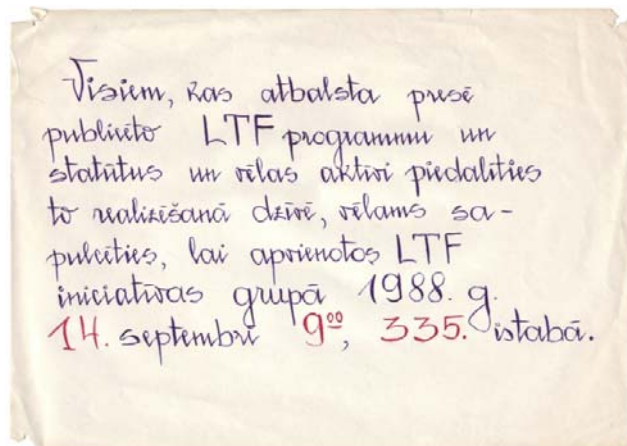 Visiem, kas atbalsta presē
publicēto LTF programmu un
statūtus un vēlas aktīvi piedalīties
to realizēšanā dzīvē, vēlams sa-
pulcēties, lai apvienotos LTF
iniciatīvas grupā 1988. g.
14. septembrī 9⁰⁰, 335. istabā.